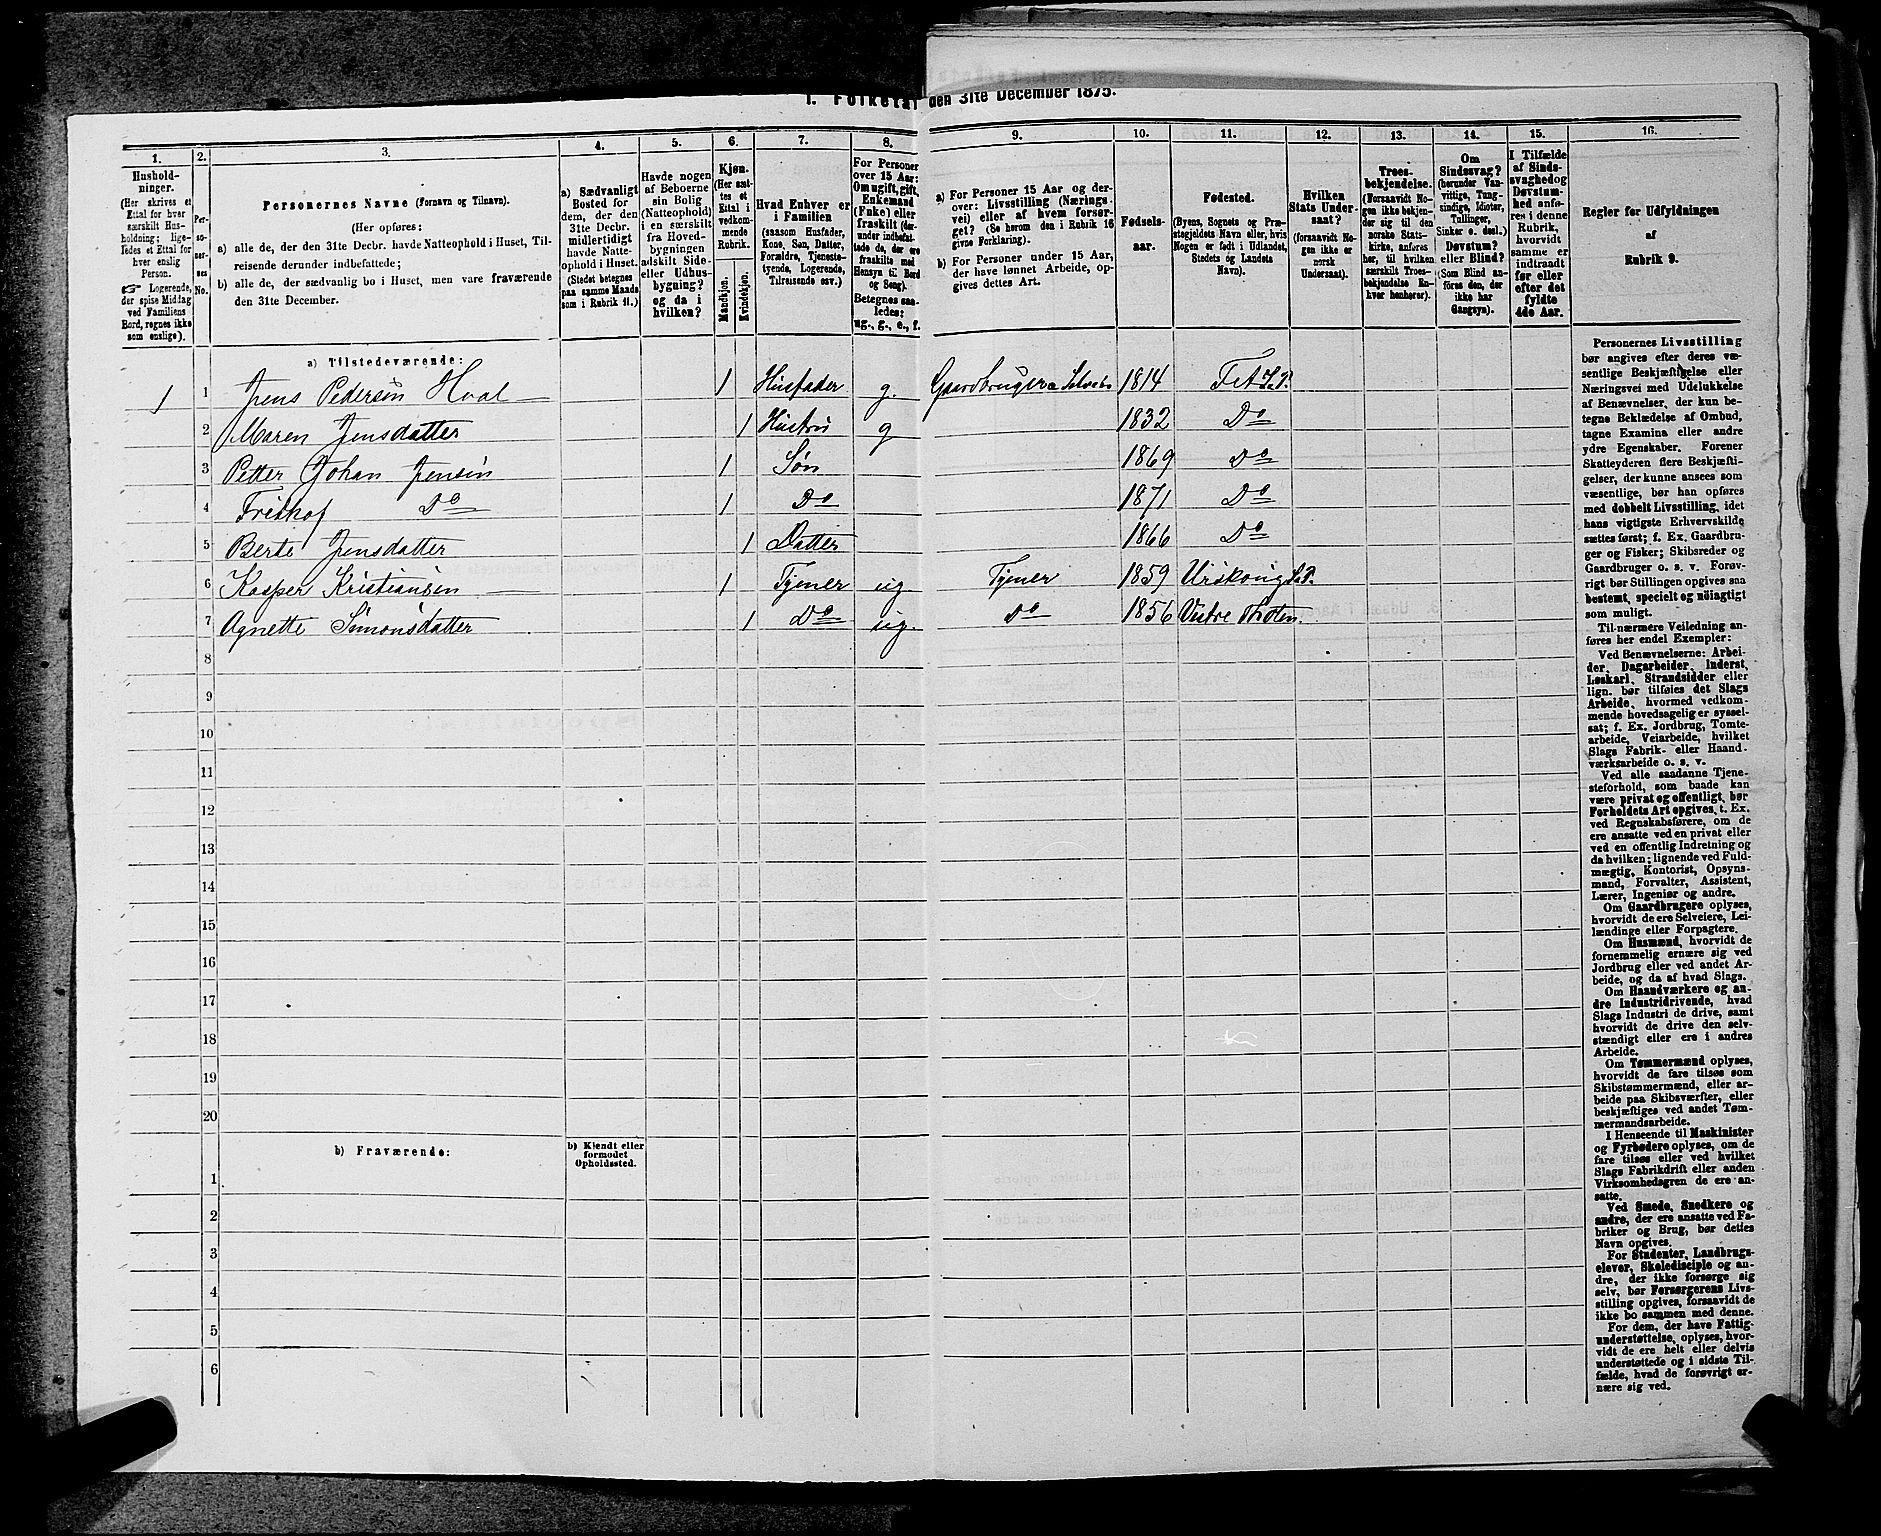 1. Folketal den 31te December 1875.
1.
Hushold-
ninger.
(Her skrives et
Ettal for hver
særskilt Hus-
holdning; lige-
ledes et Ettal for
hver enslig
Person.
☞ Logerende,
der spise Middag
ved Familiens
Bord, regnes ikke
som enslige).
2.
Per-
so-
ner-
nes
No.
3.
Personernes Navne (Fornavn og Tilnavn).
(Her opføres:
a) alle de, der den 31te Decbr. havde Natteophold i Huset, Til-
reisende derunder indbefattede;
b) alle de, der sædvanlig bo i Huset, men vare fraværende
den 31te December.
4.
a) Sædvanligt
Bosted for
dem, der den
31te Decbr.
midlertidigt
havde Natte-
ophold i Huset.
(Stedet betegnes
paa samme Maade
som i Rubrik 11.)
5.
Havde nogen
af Beboerne
sin Bolig
(Natteophold)
i en særskilt
fra Hoved-
bygningen
adskilt Side-
eller Udhus-
bygning?
og da i
hvilken?
6.
Kjøn.
(Her sæt-
tes et
Ettal i
vedkom-
mende
Rubrik.
Mandkjøn.
Kvindekjøn.
7.
Hvad Enhver er
i Familien
(saasom Husfader,
Kone, Søn, Datter,
Forældre, Tjeneste-
tyende, Logerende,
Tilreisende osv.)
8.
For Personer
over 15 Aar:
Om ugift, gift,
Enkemand
(Enke) eller
fraskilt (der-
under indbefat-
tede de, der ere
fraskilte med
Hensyn til Bord
og Seng).
Betegnes saa-
ledes:
ug., g., e., f.
9.
a) For Personer 15 Aar og der-
over: Livsstilling (Nærings-
vei) eller af hvem forsør-
get? (Se herom den i Rubrik 16
givne Forklaring).
b) For Personer under 15 Aar,
der have lønnet Arbeide, op-
gives dettes Art.
10.
Fødsels-
aar.
11.
Fødested.
(Byens, Sognets og Præ-
stegjeldets Navn eller, hvis
Nogen er født i Udlandet,
Stedets og Landets
Navn).
12.
Hvilken
Stats Under-
saat?
(forsaavidt No-
gen ikke er
norsk
Undersaat).
13.
Troes-
bekjendelse.
(Forsaavidt No-
gen ikke bekjen-
der sig til den
norske Stats-
kirke, anføres
her, til hvilken
særskilt Troes-
bekjendelse En-
hver henhører).
14.
Om
Sindssvag?
(herunder Van-
vittige, Tung-
sindige, Idioter,
Tullinger,
Sinker o. desl.)
Døvstum?
eller Blind?
(Som Blind an-
føres den, der
ikke har
Gangsyn).
15.
I Tilfælde
af Sinds-
svaghed og
Døvstum-
hed anfø-
res i denne
Rubrik,
hvorvidt
samme er
indtraadt
før eller
efter det
fyldte
4de Aar.
16.
Regler for Udfyldningen
af
Rubrik 9.
a) Tilstedeværende:
1 1 Jens Pedersøn Hval 1 Husfader g. Gaardbruger Selveier 1814 Fet S.P.
2 Maren Jensdatter 1 Hustru g 1832 Do
3 Petter Johan Jensøn 1 Søn 1869 Do
4 Frithof Do 1 Do 1871 Do
5 Berte Jensdatter 1 Datter 1866 Do
6 Kasper Kristiansen 1 Tjener ug Tjener 1859 Urskoug S.P.
7 Agnette Simonsdatter 1 Do ug. Do 1856 Vestre Thoten.
8
9
10
11
12
13
14
15
16
17
18
19
20
b) Fraværende:
b) Kjendt eller
formodet
Opholdssted.
1
2
3
4
5
6
Personernes Livsstilling
bør angives efter deres væ-
sentlige Beskjæftigelse eller
Næringsvei med Udelukkelse
af Benævnelser, der kun be-
tegne Beklædelse af Ombud,
tagne Examina eller andre
ydre Egenskaber. Forener
Skatteyderen flere Beskjæfti-
gelser, der kunne ansees som
væsentlige, bør han opføres
med dobbelt Livsstilling, idet
hans vigtigste Erhvervskilde
sættes først; f. Ex. Gaardbru-
ger og Fisker; Skibsreder og
Gaardbruger o. s. v. Forøv-
rigt bør Stillingen opgives saa
bestemt, specielt og nøiagtigt
som muligt.
Til nærmere Veiledning an-
føres her endel Exempler:
Ved Benævnelserne: Arbei-
der, Dagarbeider, Inderst,
Løskarl, Strandsidder eller
lign. bør tilføies det Slags
Arbeide, hvormed vedkom-
mende hovedsagelig er syssel-
sat; f. Ex. Jordbrug, Tomte-
arbeide, Veiarbeide, hvilket
Slags Fabrik- eller Haand-
værksarbeide o. s. v.
Ved alle saadanne Tjene-
steforhold, som baade kan
være privat og offentligt, bør
Forholdets Art opgives, t. Ex.
ved Regnskabsførere, om de
ere ansatte ved en privat eller
ved en offentlig Indretning og
da hvilken; lignende ved Fuld-
mægtig, Kontorist, Opsyns-
mand, Forvalter, Assistent,
Lærer, Ingeniør og andre.
Om Gaardbrugere oplyses,
hvorvidt de ere Selveiere, Lei-
lændinge eller Forpagtere.
Om Husmænd, hvorvidt de
fornemmelig ernære sig ved
Jordbrug eller ved andet Ar-
beide, og da af hvad Slags.
Om Haandværkere og an-
dre Industridrivende, hvad
Slags Industri de drive, samt
hvorvidt de drive den selv-
stændigt eller ere i andres
Arbeide.
Om Tømmermænd oplyses,
hvorvidt de fare tilsøs som
Skibstømmermænd, eller ar-
beide paa Skibsværfter, eller
beskjæftiges ved andet Tøm-
mermandsarbeide.
I Henseende til Maskinister
og Fyrbødere oplyses, om de
fare tilsøs eller ved hvilket
Slags Fabrikdrift eller anden
Virksomhedsgren de ere an-
satte.
Ved Smede, Snedkere og
andre, der ere ansatte ved Fa-
briker og Brug, bør dettes
Navn opgives.
For Studenter, Landbrugs-
elever, Skoledisciple og an-
dre, der ikke forsørge sig
selv, bør Forsørgerens Livs-
stilling opgives, forsaavidt de
ikke bo sammen med denne.
For dem, der have Fattig-
understøttelse, oplyses, hvor-
vidt de ere helt eller delvis
understøttede og i sidste Til-
fælde, hvad de forøvrigt er-
nære sig ved.